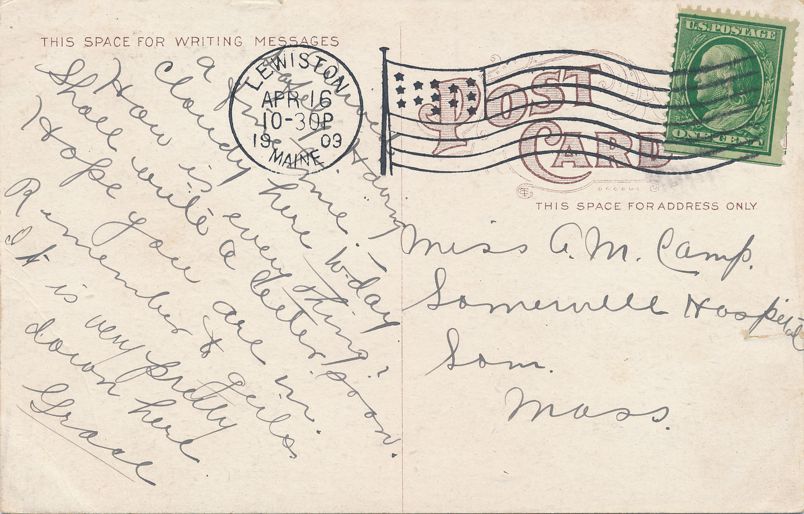 THIS SPACE FOR WRITING MESSAGES
Having
a fine time.
Cloudy here to-day
How is everything?
Shall write a letter soon.
Hope you are in.
Remember to
It is very pretty
down here
Grace
LEWISTON
APR 16
10-30P
1909
MAINE
POST
CARD
U.S. POSTAGE
ONE CENT
THIS SPACE FOR ADDRESS ONLY
Miss A. M. Camp.
Somerville Hospital
Som.
Mass.